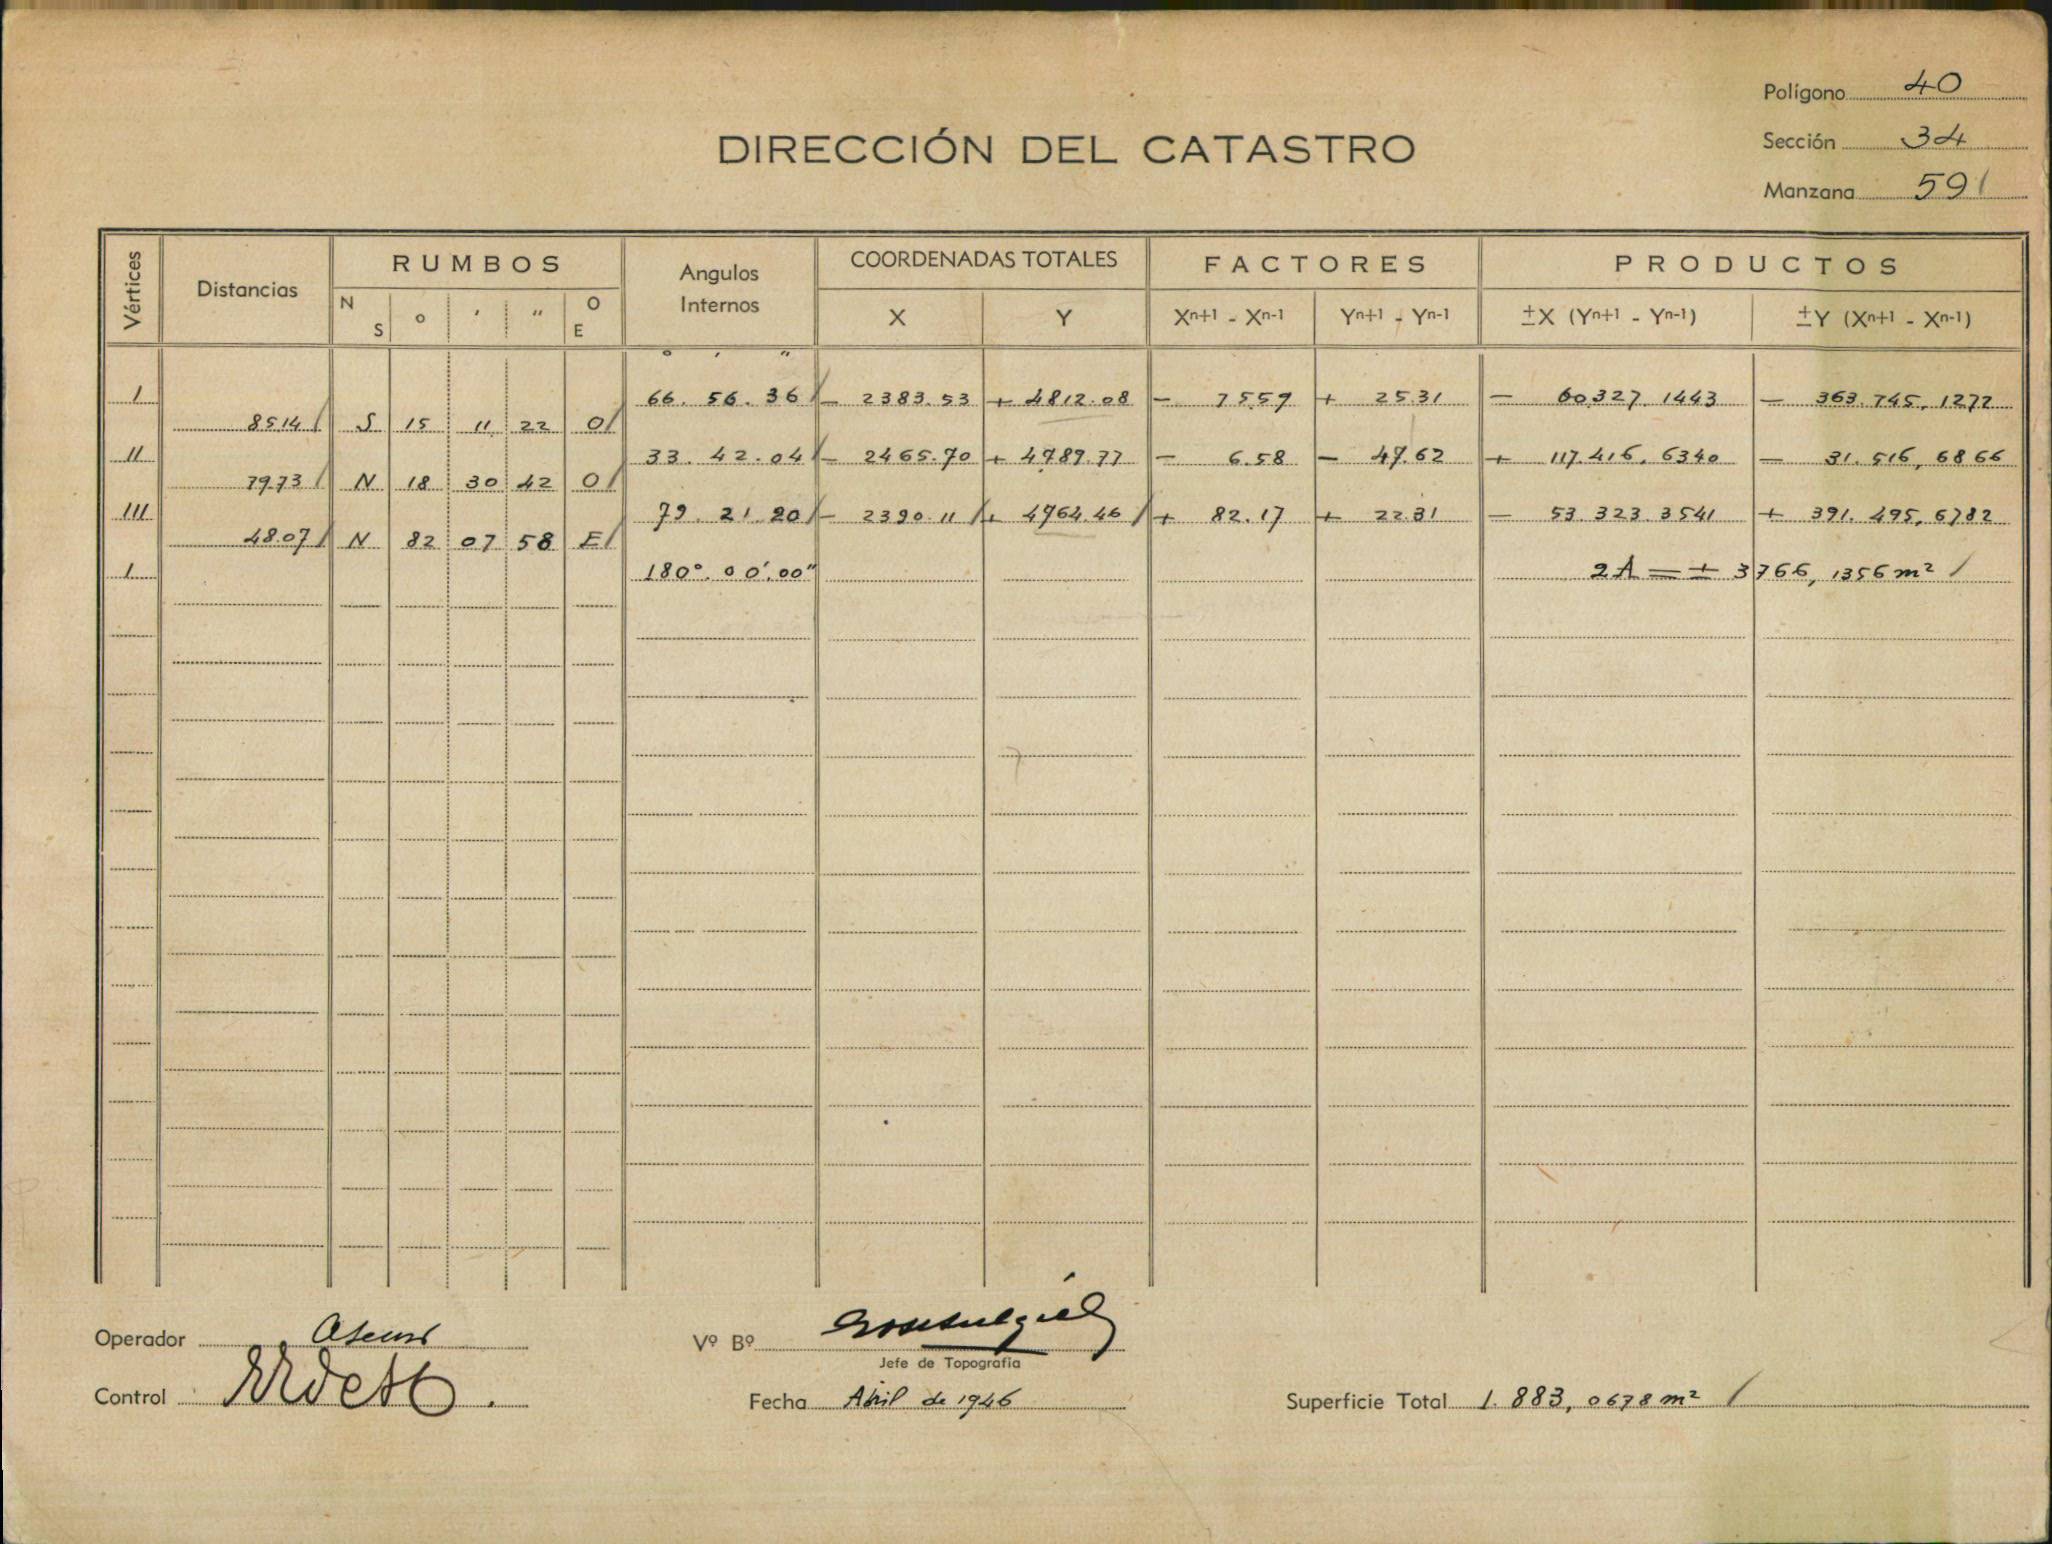 Polígono 40
Sección 34
Manzana 59 /
DIRECCIÓN DEL CATASTRO
Vértices Distancias RUMBOS Angulos Internos COORDENADAS TOTALES FACTORES PRODUCTOS
N S ° ′ ″ O E X Y Xn+1 - Xn-1 Yn+1 - Yn-1 ±X (Yn+1 - Yn-1) ±Y (Xn+1 - Xn-1)
° ′ ″
I 66. 56. 36 / - 2383.53 + 4812.08 - 75.59 + 25.31 - 60.327.1443 - 363.745,1272
85.14 / S 15 11 22 O /
II 33. 42. 04 / - 2465.70 + 4789.77 - 6.58 - 47.62 + 117.416.6340 - 31.516,6866
79.73 / N 18 30 42 O /
III 79. 21 20 / - 2390.11 / + 4764.46 / + 82.17 + 22.31 - 53.323.3541 + 391.495,6782
48.07 / N 82 07 58 E /
I 180°.00'.00" 2A = ± 3766,1356 m² /
Operador
Vº Bº
Jefe de Topografía
Control
Fecha Abril de 1946
Superficie Total 1.883,0678 m² /